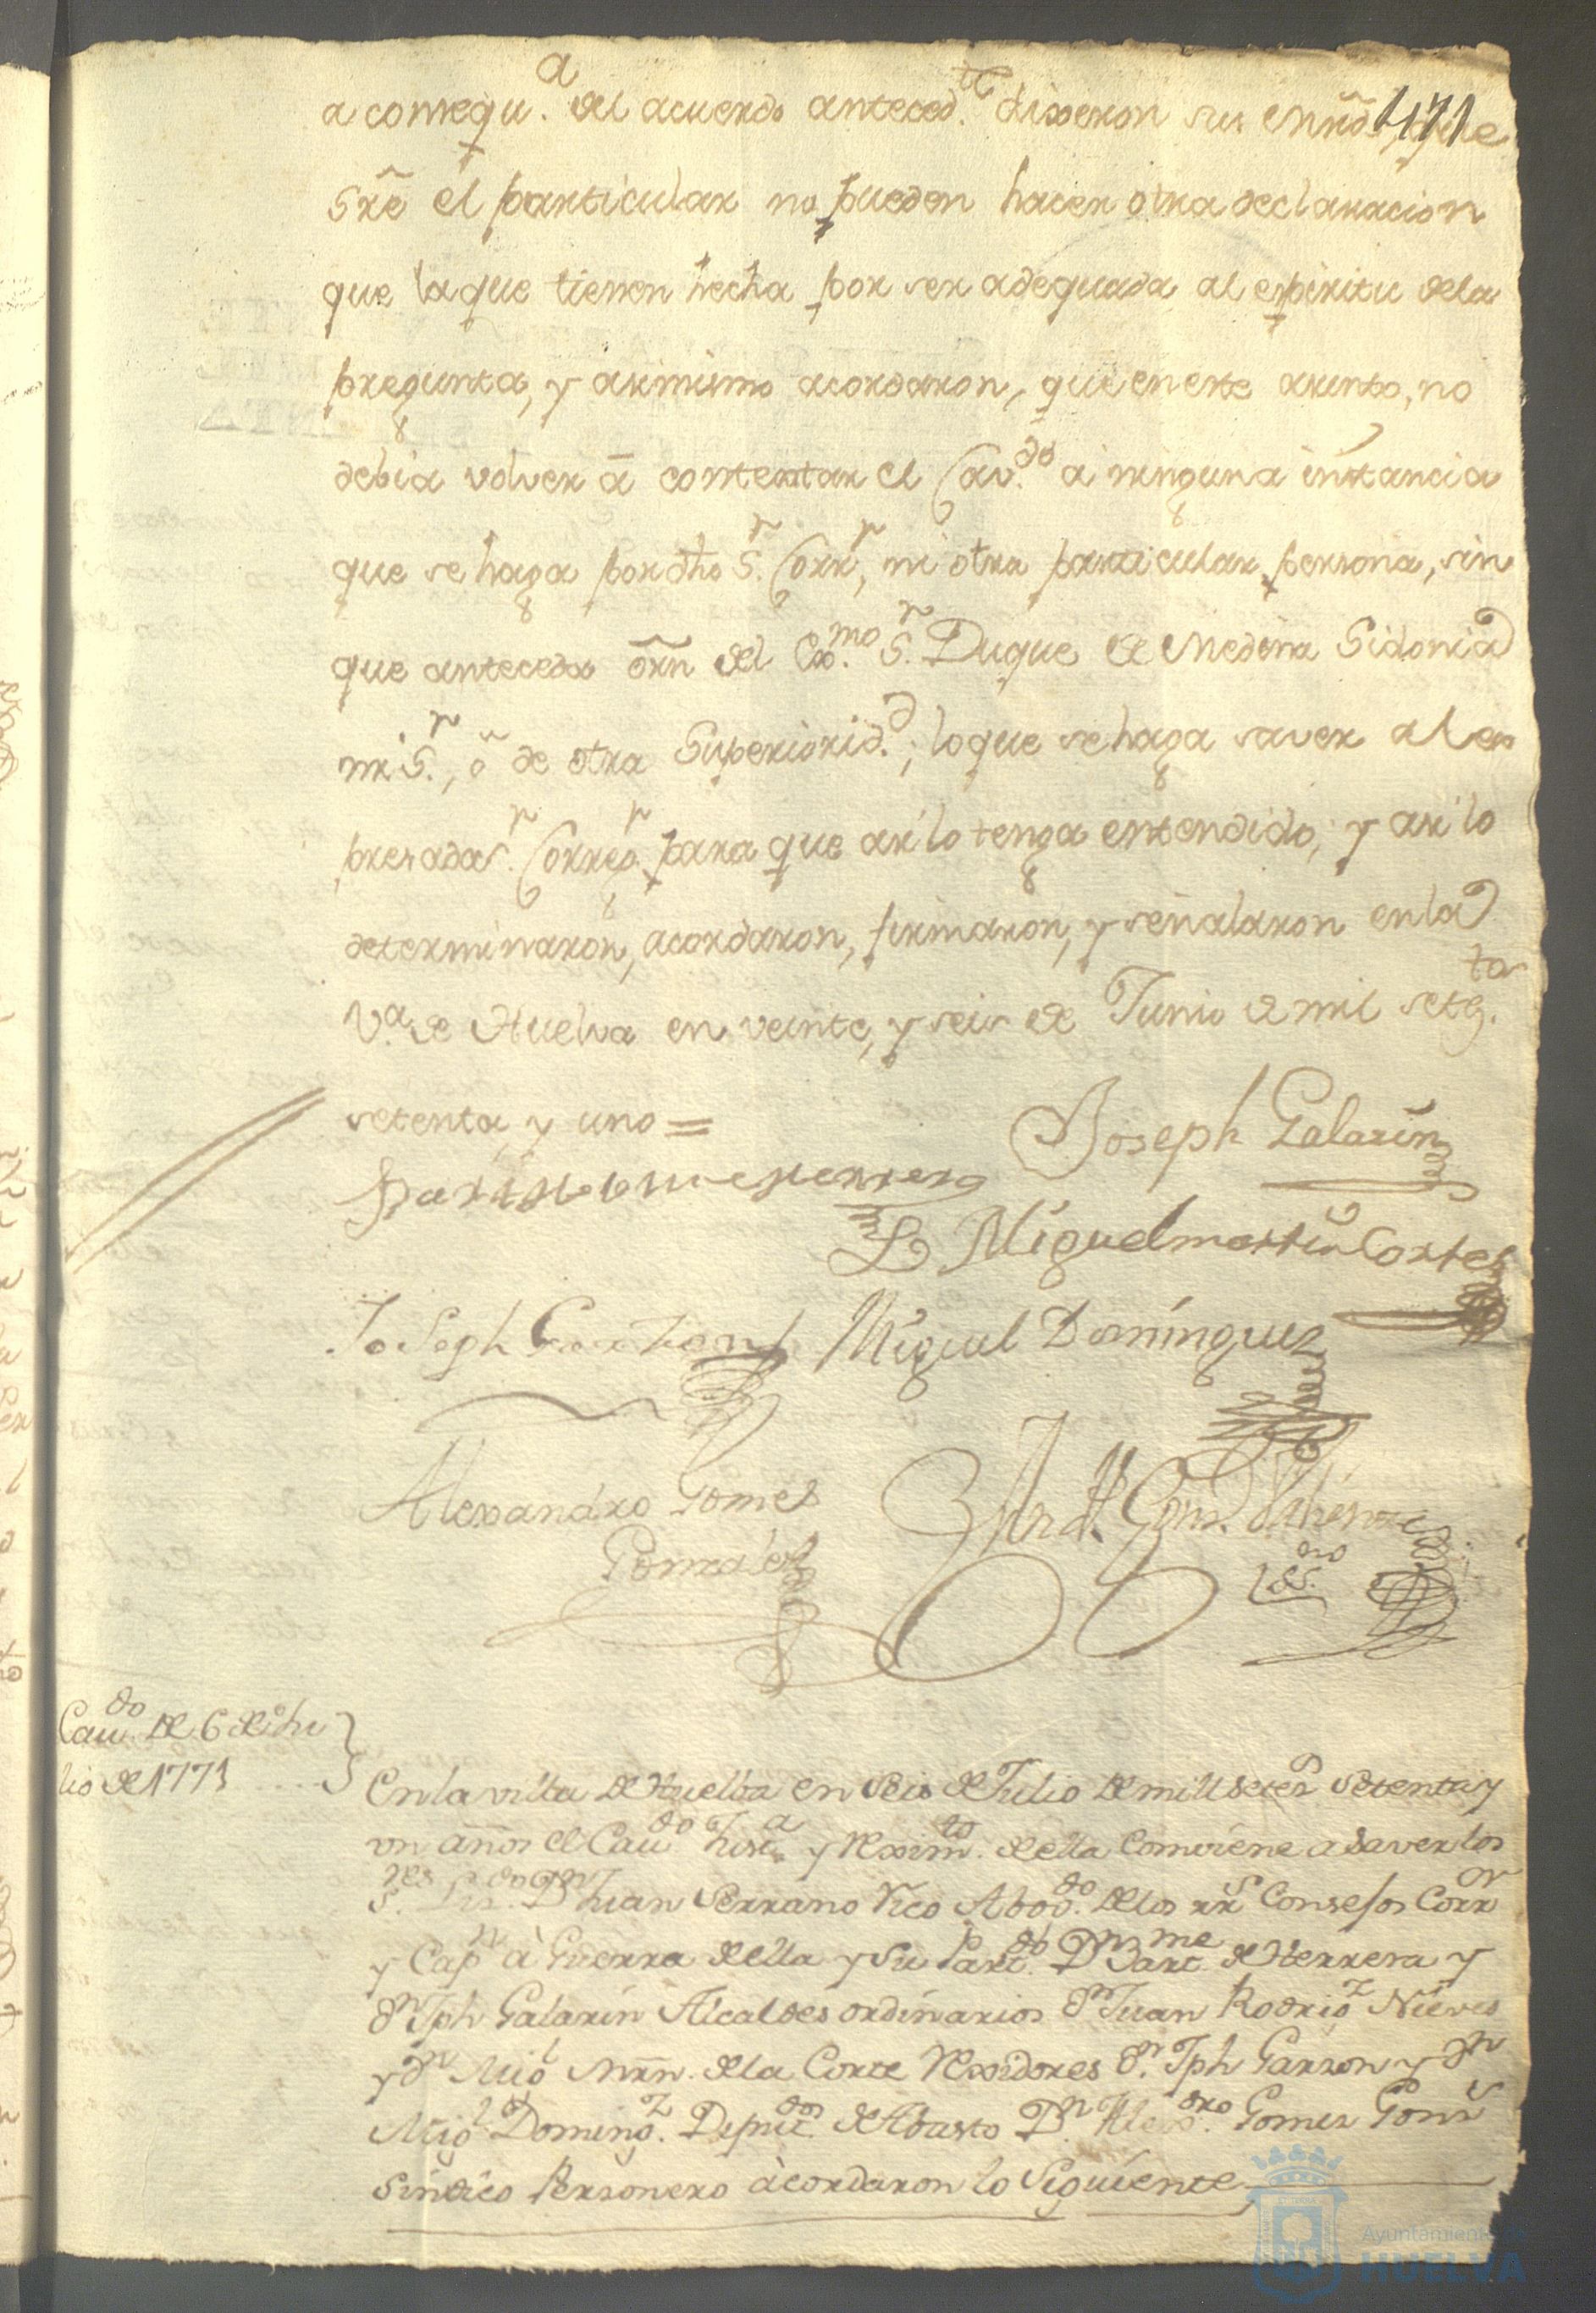 171
a consequ.ª del acuerdo anteced.te dixeron sus mrds, que
sre el particular no pueden hacer otra declaracion
que la que tienen hecha por ser adequada al espiritu dela
pregunta, y asimismo acordaron, que en este asunto, no
debia volver â contextar el Cav.do a ninguna instancia
que se haga por dho S.r Corr.r, ni otra particular persona, sin
que anteceda orñ del Exc.mo S.r Duque de Medina Sidonia
mi S.r, ô de otra Superiorid.d; lo que se haga saver al ex
presada S.r Correg.r para que asi lo tenga entendido, y asi lo
determinaron, acordaron, firmaron, y señalaron en la
V.ª de Huelva en veinte, y seis de Junio de mil setez.tos
setenta y uno =
Joseph Galarin
Bartholome Herrera
Miguel martin Cortes
Joseph Garzon
Miguel Dominguez
Alexandro Gomes
Gonzales
Ess.no
Cau.do de 6 de Ju
lio de 1771
En la villa de Huelba en seis de Julio de mill setes setenta y
un años el Cau.do Just.a y Rexim.to de ella Combiene a saver los
S.res Liz.do Dn Juan Serrano Vico Abog.do de los RR.s Consejos Corr.or
y Cap.n à Guerra de ella y su Part.do Dn Bart.me de Herrera y
Dn Jph Galarin Alcaldes ordinarios Dn Juan Rodrig.z Nieves
y Dn Mig.l Mrn. de la Corte Rexidores Dn Jph Garzon y Dn
Mig.l Doming.z Deput.dos de Abasto Dn Alex.dro Gomez Gons
Sindico Personero àcordaron lo Siguiente
Ayuntamiento de
HUELVA